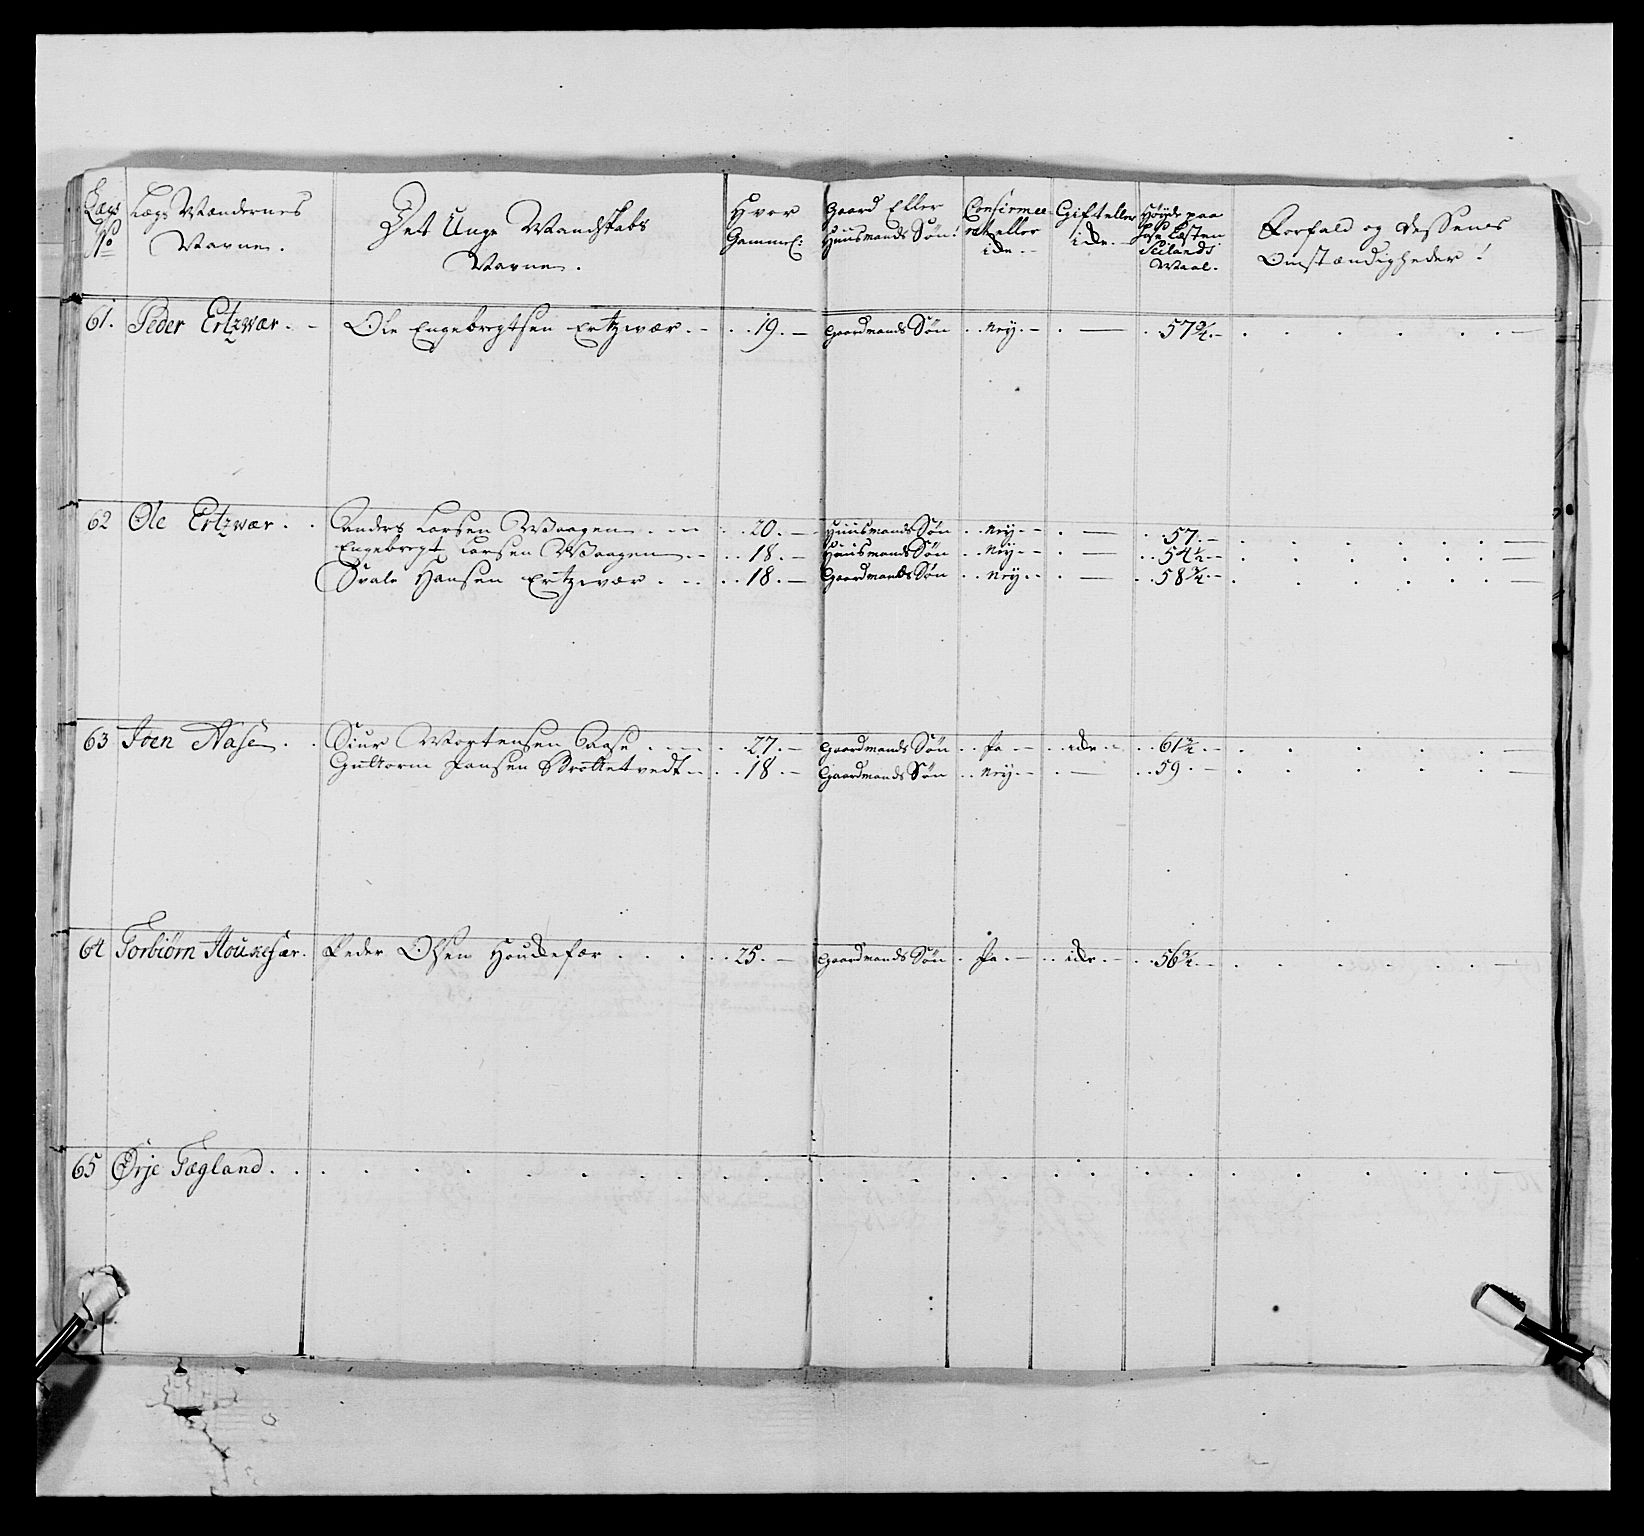 Lægs No | Lægs Mændernes Navne. | Det Unge Mandskabs Navne. | Hvor Gammel: | Gaard Eller Huusmands Søn! | Confirmeeret eller icke. | Gift eller icke. | Høyde paa Seilands Maal. | Forfald og dessenes Omstændigheder!
61. | Peder Ertzwær. | Ole Engebregtsen Ertzwær. | 19. | Gaardmands Søn | Ney. | — | 57 3/4.
62 | Ole Ertzwær. | Anders Larsen Waagen | 20. | Huusmands Søn | Ney. | — | 57.
Engebregt Larsen Waagen | 18. | Huusmands Søn | Ney. | — | 54 1/2.
Svale Hansen Ertzwær. | 18. | Gaardmands Søn | Ney. | — | 58 3/4.
63 | Joen Aase | Siur Mortensen Aase | 27. | Gaardmands Søn | Ja | icke | 61 1/2.
Guttorm Jansen Brottetvedt | 18. | Gaardmands Søn | Ney. | — | 59.
64 | Torbiørn Houkefær. | Peder Olsen Houckefær | 25. | Gaardmands Søn | Ja | icke | 56 3/4.
65 | Ørje Fægland.